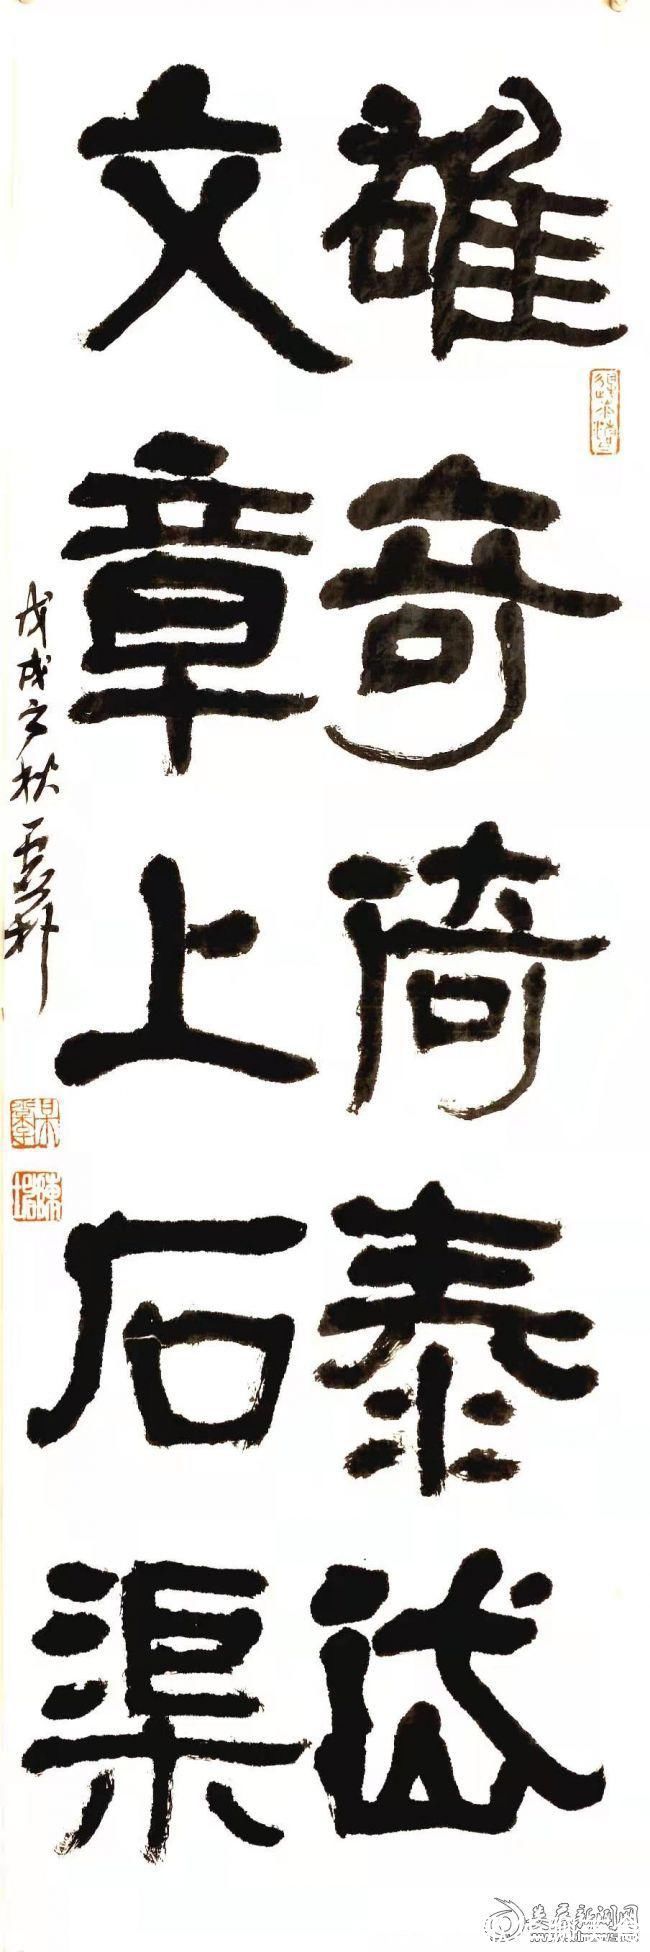 雄奇倚泰岱
文章上石渠
戊戌秋
娄底新闻网